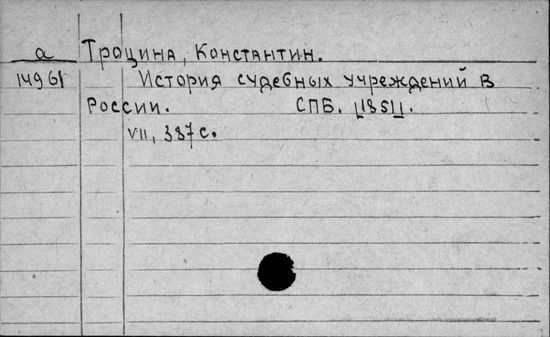 а Троцина, Константин.
14961 История судебных учреждений в
России. СПБ. [1851].
VII, 387 с.